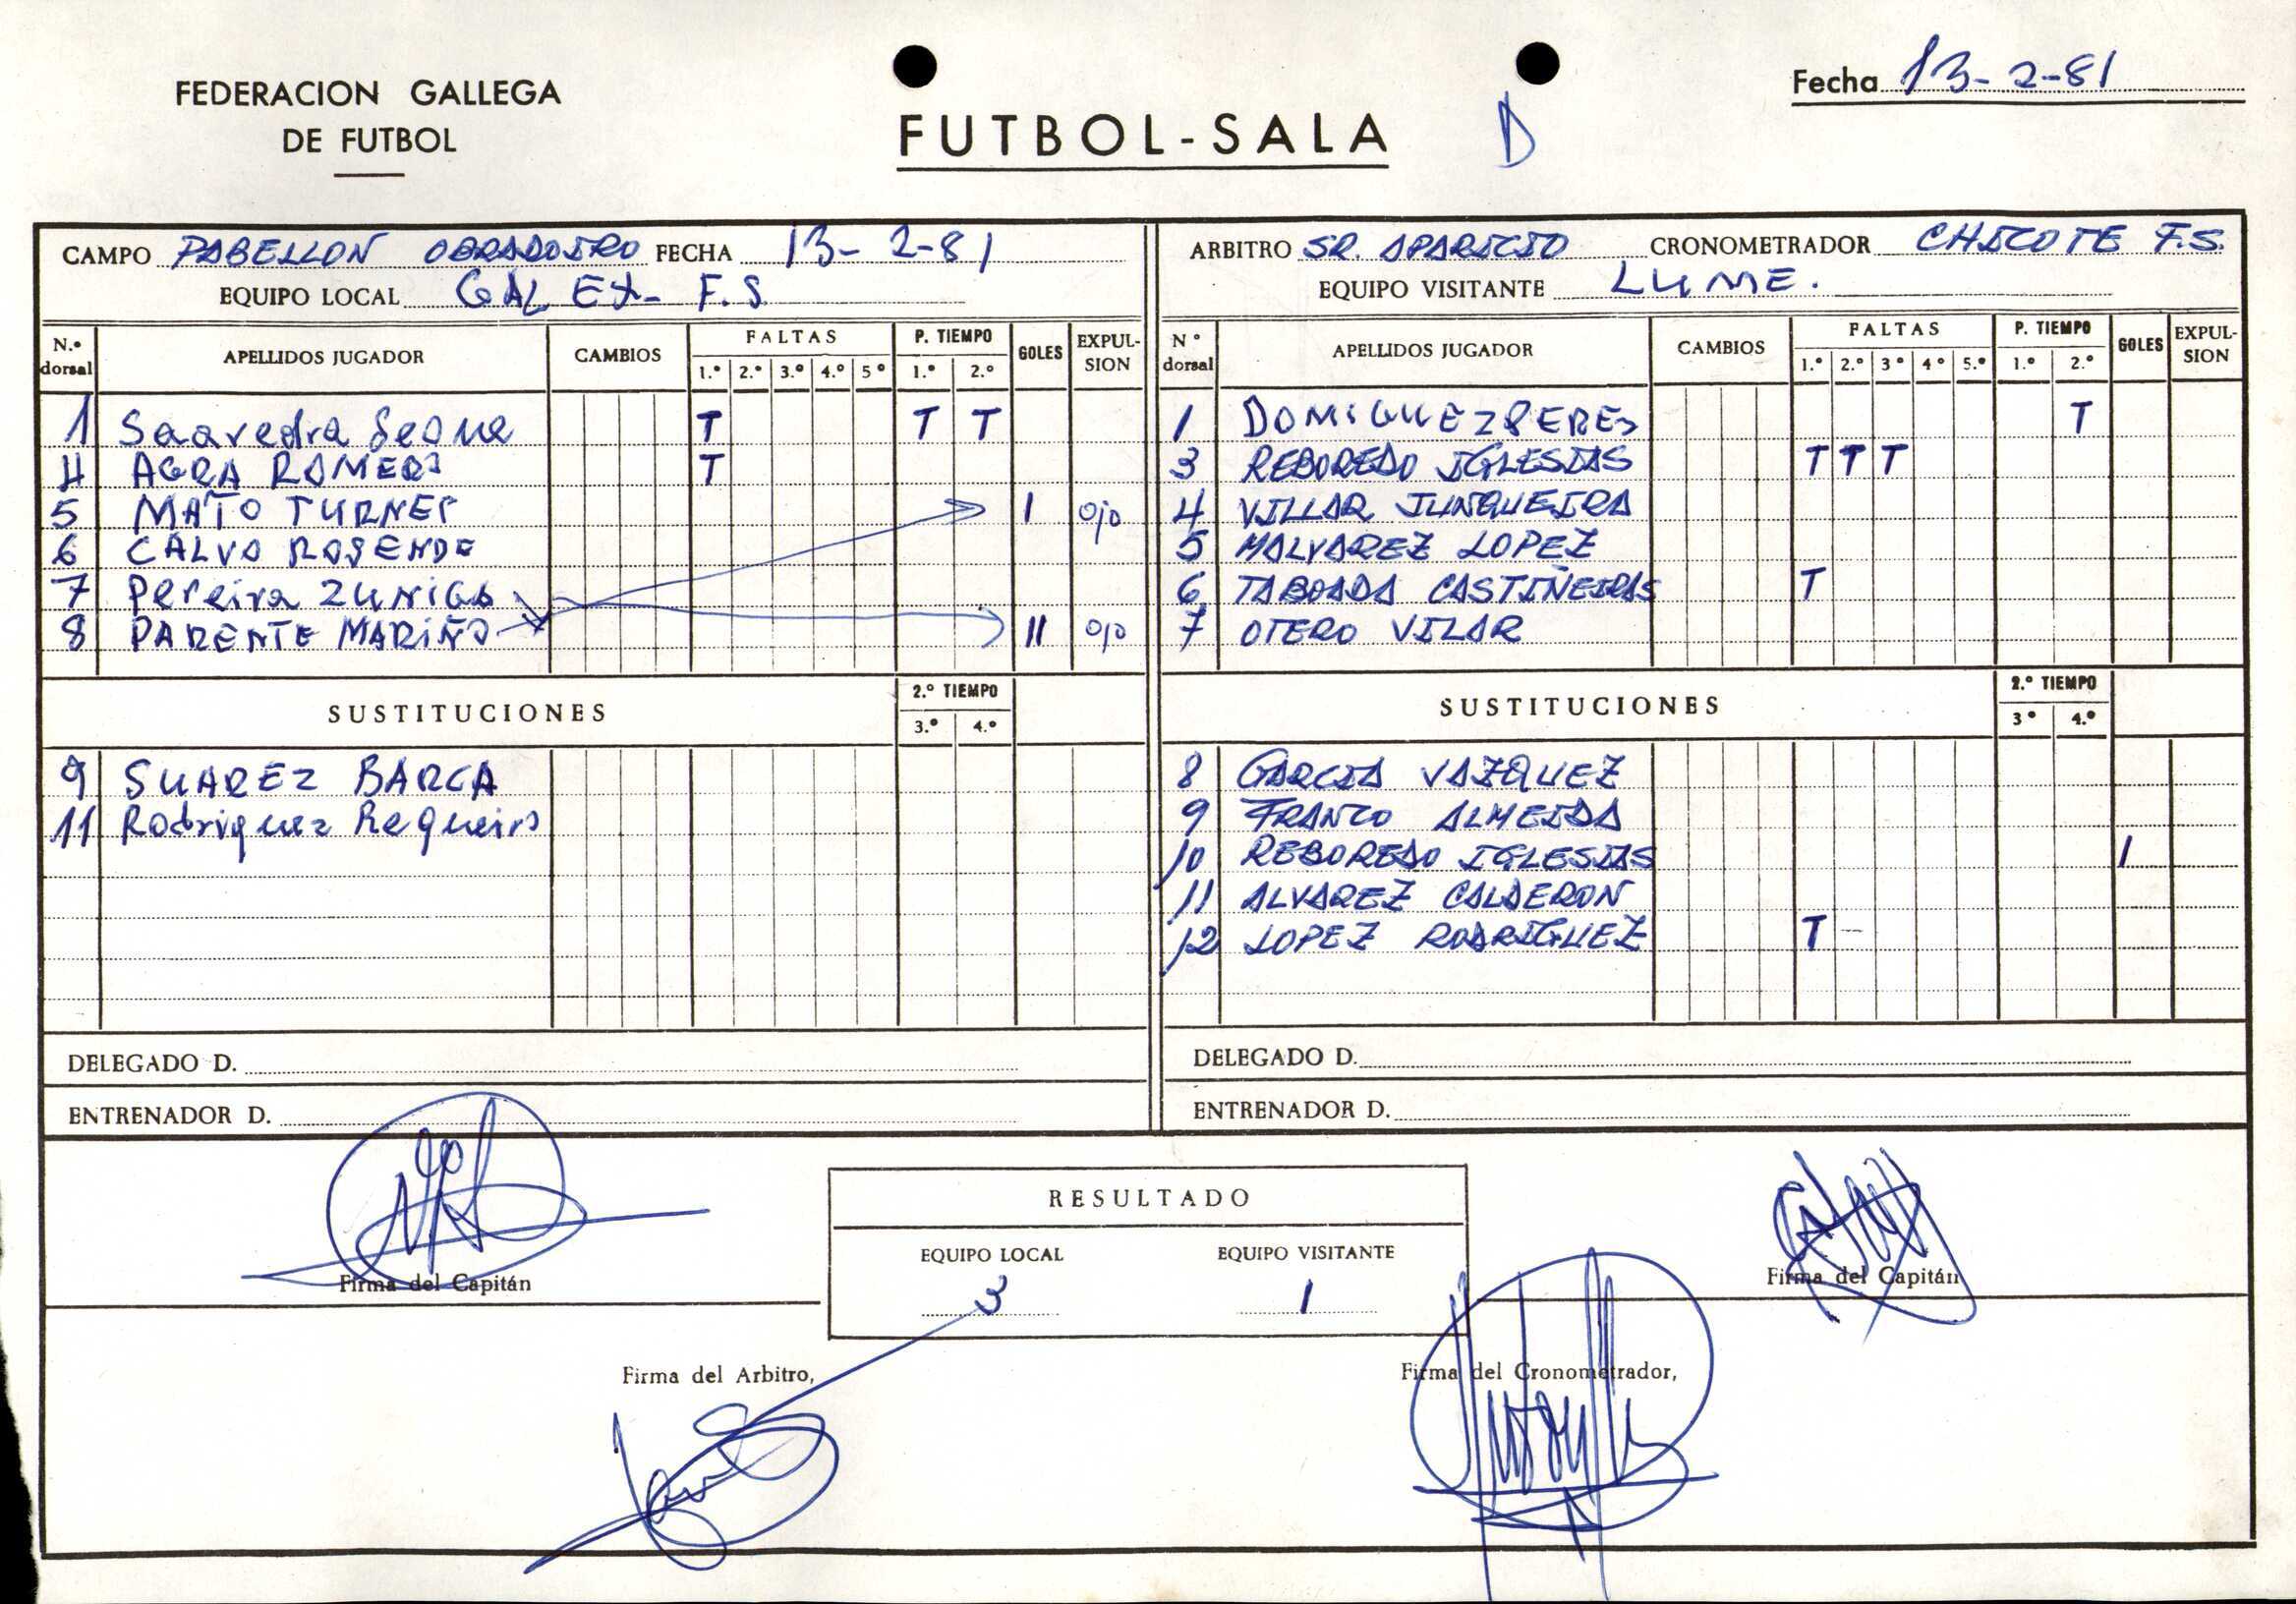 FEDERACION GALLEGA
DE FUTBOL
FUTBOL-SALA
D
Fecha 13-2-81
CAMPO PABELLON OBRADOIRO FECHA 13-2-81
EQUIPO LOCAL GALEX- F.S
N.º dorsal APELLIDOS JUGADOR CAMBIOS FALTAS 1.º 2.º 3.º 4.º 5º P. TIEMPO 1.º 2.º GOLES EXPULSION
1 Saavedra Seone T T T
4 AGRA ROMERO T
5 MATO TURNES I ojo
6 CALVO ROSENDE
7 Pereira ZUNIGA
8 PARENTE MARIÑO II ojo
SUSTITUCIONES 2.º TIEMPO 3.º 4.º
9 SUAREZ BARCA
11 Rodriguez Regueiro
DELEGADO D.
ENTRENADOR D.
ARBITRO SR. APARICIO CRONOMETRADOR CHICOTE F.S.
EQUIPO VISITANTE LUME.
Nº dorsal APELLIDOS JUGADOR CAMBIOS FALTAS 1.º 2.º 3º 4º 5.º P. TIEMPO 1.º 2.º GOLES EXPULSION
1 DOMIGUEZ PERES T
3 REBOREDO IGLESIAS T T T
4 VILLAR JUNQUEIRA
5 MALVAREZ LOPEZ
6 TABOADA CASTIÑEIRAS T
7 OTERO VILAR
SUSTITUCIONES 2.º TIEMPO 3º 4.º
8 GARCIA VAZQUEZ
9 FRANCO ALMEIDA
10 REBOREDO IGLESIAS I
11 ALVAREZ CALDERON
12 LOPEZ RODRIGUEZ T -
DELEGADO D.
ENTRENADOR D.
RESULTADO
EQUIPO LOCAL EQUIPO VISITANTE
3 1
Firma del Capitán
Firma del Capitán
Firma del Arbitro,
Firma del Cronometrador,